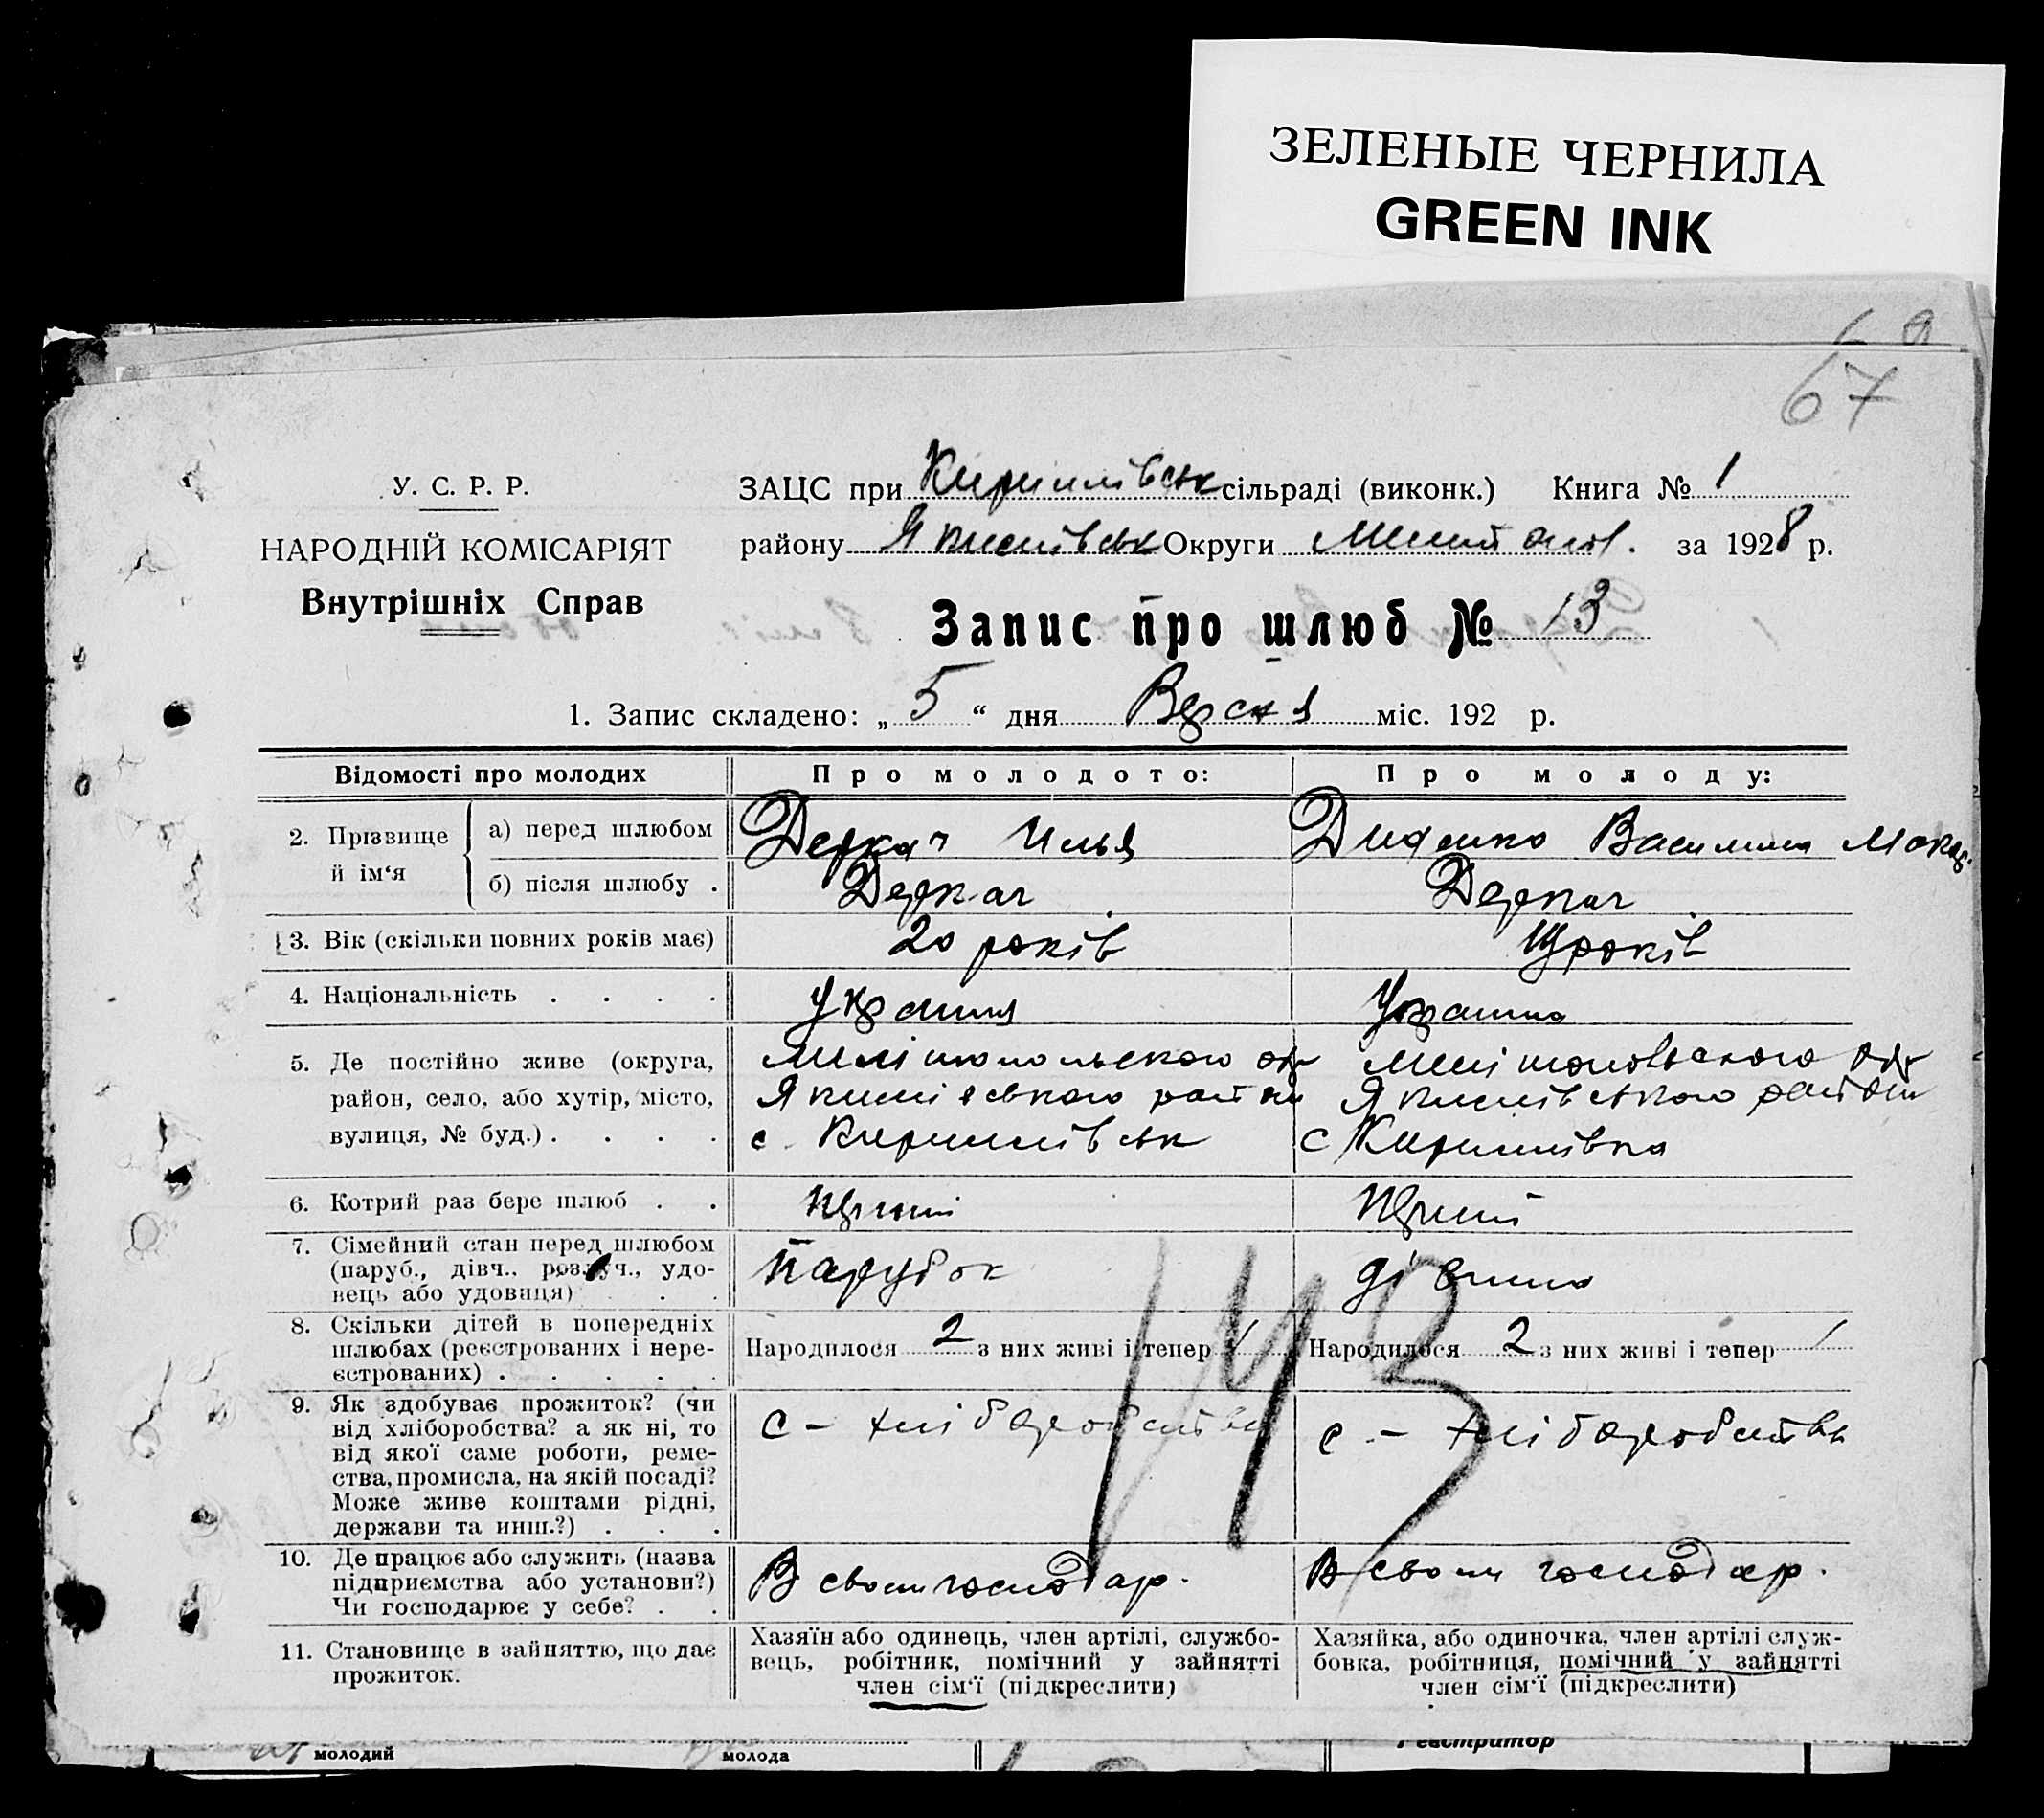 ЗЕЛЕНЫЕ ЧЕРНИЛА
GREEN INK
67
У. С. Р. Р.
НАРОДНІЙ КОМІСАРІЯТ
Внутрішніх Справ
ЗАЦС при Кирилівськ сільраді (виконк.) Книга № 1
району Якимівськ Округи за 1928 р.
Запис про шлюб № 13
1. Запис складено: „ 5 “ дня міс. 192 р.
Відомості про молодих Про молодого: Про молоду:
2. Прізвище й ім‘я
а) перед шлюбом Деркач Илья Василина Макар.
б) після шлюбу . Деркач Деркач
3. Вік (скільки повних років має) 20 років років
4. Національність . . . .
5. Де постійно живе (округа, район, село, або хутір, місто, вулиця, № буд.) . . . .
Якимівського район Якимівського район
с. Кирилівськ с Кирилівка
6. Котрий раз бере шлюб . .
7. Сімейний стан перед шлюбом Парубок
(паруб., дівч., розлуч., удо-
вець або удовиця) . .
8. Скільки дітей в попередніх
шлюбах (реєстрованих і нере- Народилося 2 з них живі і тепер 1 Народилося 2 з них живі і тепер 1
єстрованих) . . . . .
9. Як здобуває прожиток? (чи
від хліборобства? а як ні, то с – хліборобства с – хліборобства
від якої саме роботи, реме-
ства, промисла, на якій посаді?
Може живе коштами рідні,
держави та инш.?) . . .
143
10. Де працює або служить (назва
підприємства або установи?) В своим господар. В своим господар.
Чи господарює у себе? . .
11. Становище в зайняттю, що дає
прожиток.
Хазяїн або одинець, член артілі, службо-
вець, робітник, помічний у зайнятті
член сім‘ї (підкреслити)
Хазяйка, або одиночка, член артілі служ-
бовка, робітниця, помічний у зайнятті
член сім‘ї (підкреслити)
молодий молода Реєстратор